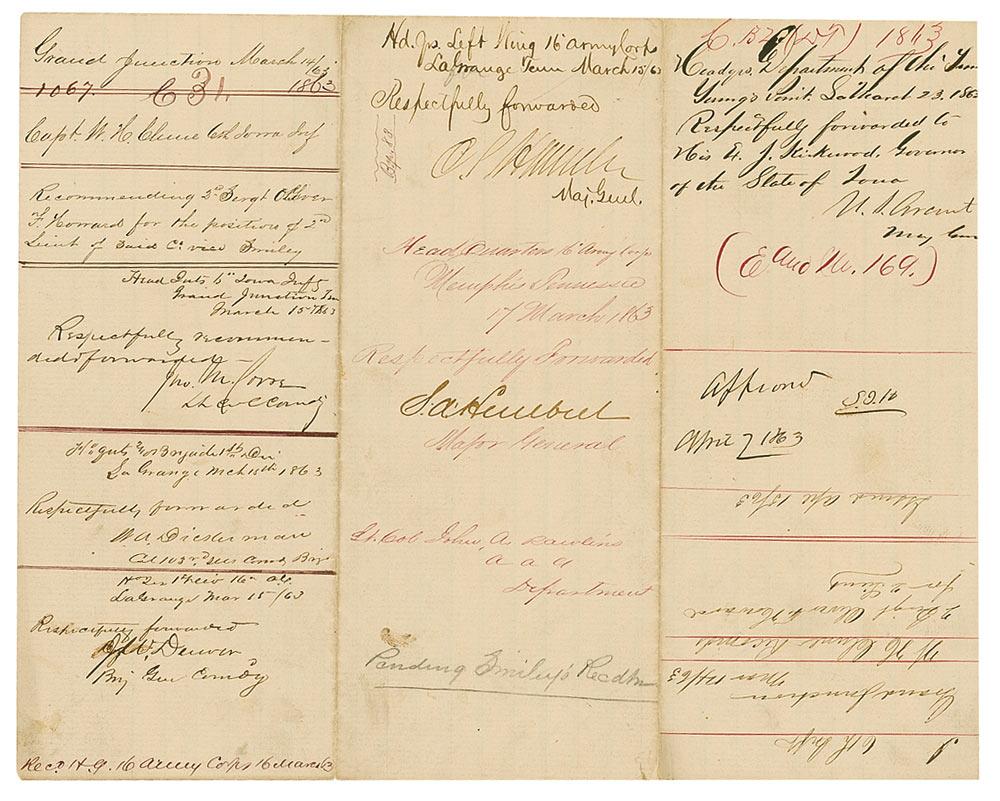 Grand Junction March 14/63
1067. C 31. 1863
Capt. W. H. Clune 6th Iowa Inf
Recommending 2d Sergt Oliver
F. Howard for the position of 2nd
Lieut of said Co vice Smiley
Head Qrts 6th Iowa Infy
Grand Junction Ten
March 15th 1863
Respectfully recommen-
ded & forwarded
Jno. M. Corse
Lt Col Comdg
Hd Qrts Brigade 1st Div
La Grange Mch 15th 1863
Respectfully forwarded
W. A. Dickerman
Col 103rd Ills Comd Brig
Hd Qrs 1st Div 16th A.C.
LaGrange Mar 15/63
Respectfully forwarded
J. W. Denver
Brig Gen Comdg
Recd H. Q. 16 Army Corps 16 March 63
Hd. Qrs. Left Wing 16 Army Corps
LaGrange Tenn March 15/63
Respectfully forwarded
C S Hamilton
Maj. Genl.
Head Quarters 16 Army Corps
Memphis Tennessee
17 March 1863
Respectfully Forwarded
S. A. Hurlbut
Major General
Lt. Col John. A. Rawlins
A A G
Department
Pending Smiley's
1863
Headqrs. Department of the Tenn
Young's Point. La March 23. 1863
Respectfully forwarded to
His E. S. J. Kirkwood. Governor
of the State of Iowa
U. S. Grant
Maj Gen
(E and M. 169.)
Approved
S.J.K
April 7 1863
Issued Apl 13/63
for 2 Lieut
2 Sergt Oliver F. Howard
W H Clune
Grand Junction
Mar 14/63
6th Infy